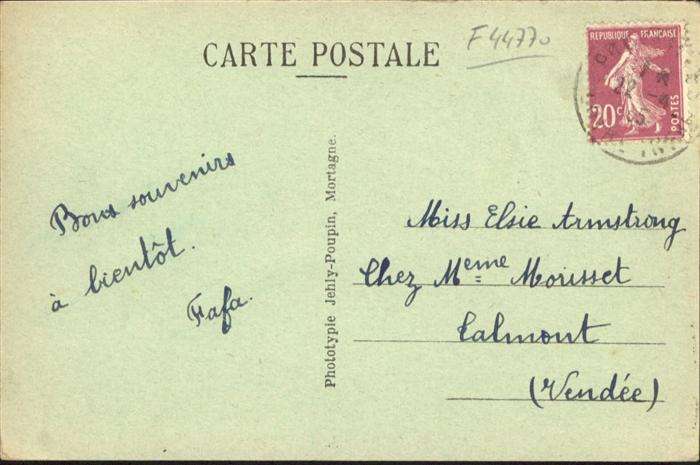 CARTE POSTALE
F44770
REPUBLIQUE FRANÇAISE
20c
POSTES
22
Bons souvenirs
à bientôt.
Fafa.
Phototypie Jehly-Poupin, Mortagne.
Miss Elsie Armstrong
Chez Meme Morisset
Talmont
(Vendée)